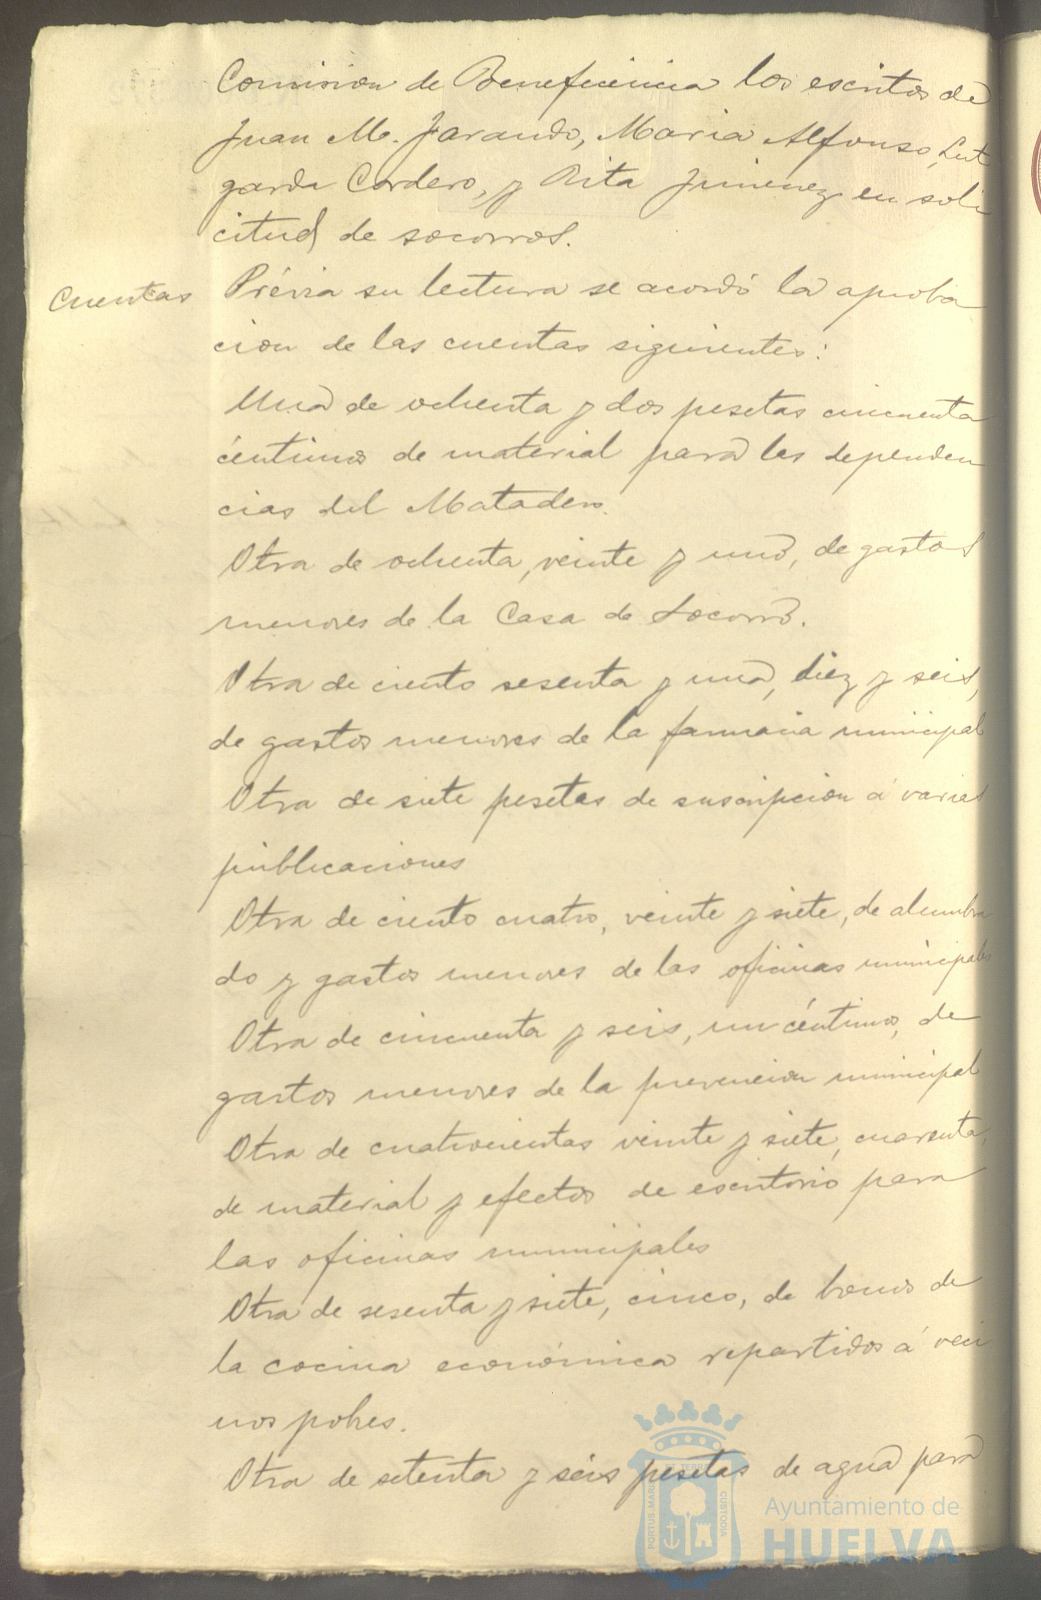 Comision de Beneficencia los escritos de
Juan M. Jarando, Maria Alfonso, Lut
garda Cordero, y Rita Jimenez en soli
citud de socorros.
Cuentas
Prévia su lectura se acordó la aproba
cion de las cuentas siguientes:
Una de ochenta y dos pesetas cincuenta
céntimos de material para las dependen
cias del Matadero.
Otra de ochenta, veinte y uno, de gastos
menores de la Casa de Socorro.
Otra de ciento sesenta y una, diez y seis,
de gastos menores de la farmacia municipal
Otra de siete pesetas de suscripcion á varias
publicaciones
Otra de ciento cuatro, veinte y siete, de alumbra
do y gastos menores de las oficinas municipales
Otra de cincuenta y seis, un céntimo, de
gastos menores de la prevencion municipal
Otra de cuatrocientas veinte y siete, cuarenta,
de material y efectos de escritorio para
las oficinas municipales
Otra de sesenta y siete, cinco, de bonos de
la cocina económica repartidos á veci
nos pobres.
Otra de setenta y seis pesetas de agua para
PORTUS MARIS ET TERRAE CUSTODIA
Ayuntamiento de
HUELVA